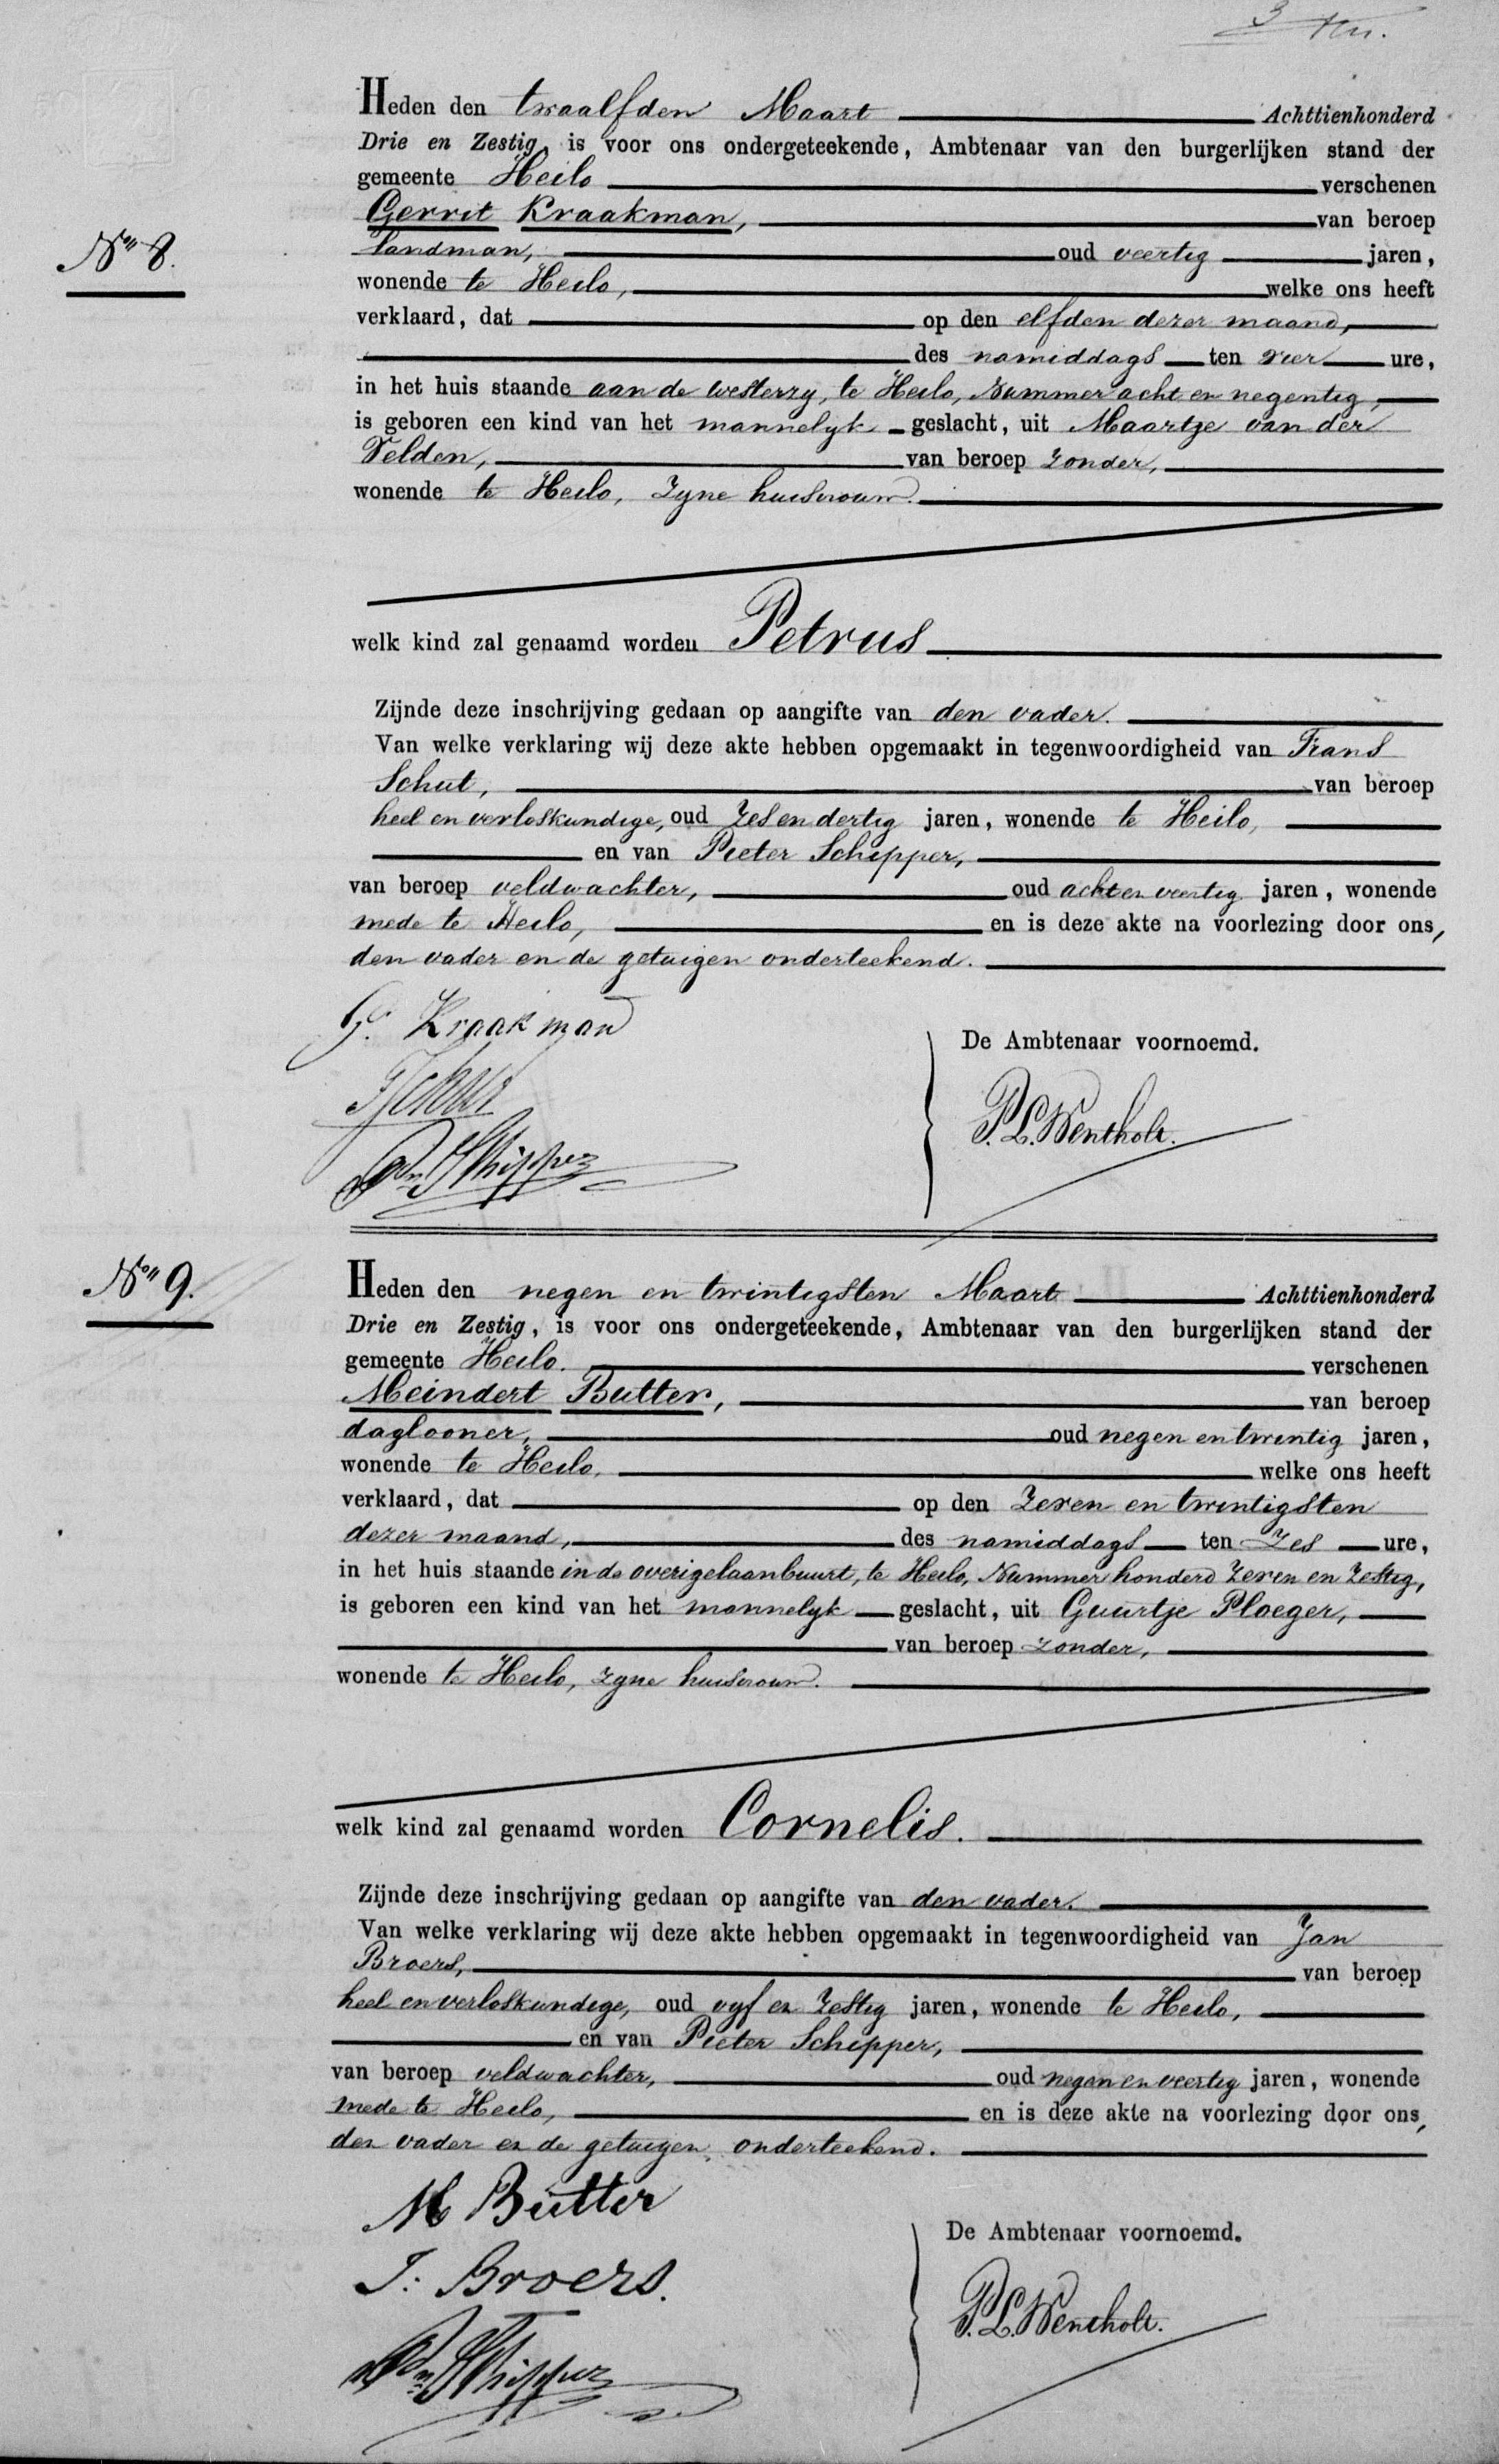 3
Heden den twaalfden Maart Achttienhonderd
Drie en Zestig, is voor ons ondergeteekende, Ambtenaar van den burgerlijken stand der
gemeente Heilo verschenen
Gerrit Kraakman, van beroep
No 8.
landman, oud veertig jaren,
wonende te Heilo, welke ons heeft
verklaard, dat op den elfden dezer maand,
des namiddags ten vier ure,
in het huis staande aan de westerzy, te Heilo, Nummer acht en negentig,
is geboren een kind van het mannelyk geslacht, uit Maartje van der
Velden, van beroep zonder,
wonende te Heilo, zyne huisvrouw.
welk kind zal genaamd worden Petrus
Zijnde deze inschrijving gedaan op aangifte van den vader.
Van welke verklaring wij deze akte hebben opgemaakt in tegenwoordigheid van Frans
Schut, van beroep
heel en verloskundige, oud zes en dertig jaren, wonende te Heilo,
en van Pieter Schipper,
van beroep veldwachter, oud acht en veertig jaren, wonende
mede te Heilo, en is deze akte na voorlezing door ons,
den vader en de getuigen onderteekend.
G. Kraakman
De Ambtenaar voornoemd.
FSchut
P.L. Wentholt.
Pr Schipper
No 9.
Heden den negen en twintigsten Maart Achttienhonderd
Drie en Zestig, is voor ons ondergeteekende, Ambtenaar van den burgerlijken stand der
gemeente Heilo. verschenen
Meindert Butter, van beroep
daglooner, oud negen en twintig jaren,
wonende te Heilo, welke ons heeft
verklaard, dat op den zeven en twintigsten
dezer maand, des namiddags ten zes ure,
in het huis staande in de overigelaanbuurt, te Heilo, Nummer honderd zeven en zestig,
is geboren een kind van het mannelyk geslacht, uit Guurtje Ploeger,
van beroep zonder,
wonende te Heilo, zyne huisvrouw.
welk kind zal genaamd worden Cornelis.
Zijnde deze inschrijving gedaan op aangifte van den vader.
Van welke verklaring wij deze akte hebben opgemaakt in tegenwoordigheid van Jan
Broers, van beroep
heel en verloskundige, oud vyf en zestig jaren, wonende te Heilo,
en van Pieter Schipper,
van beroep veldwachter, oud negen en veertig jaren, wonende
mede te Heilo, en is deze akte na voorlezing door ons,
den vader en de getuigen, onderteekend.
M Butter
De Ambtenaar voornoemd.
J. Broers.
P.L. Wentholt.
Pr Schipper